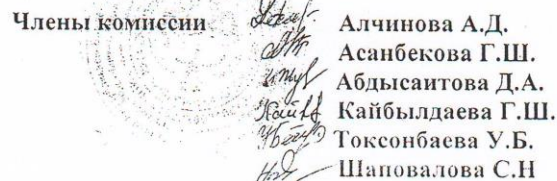 Члены комиссии Алчинова А.Д.
Асанбекова Г.Ш.
Абдысаитова Д.А.
Кайбылдаева Г.Ш.
Токсонбаева У.Б.
Шаповалова С.Н